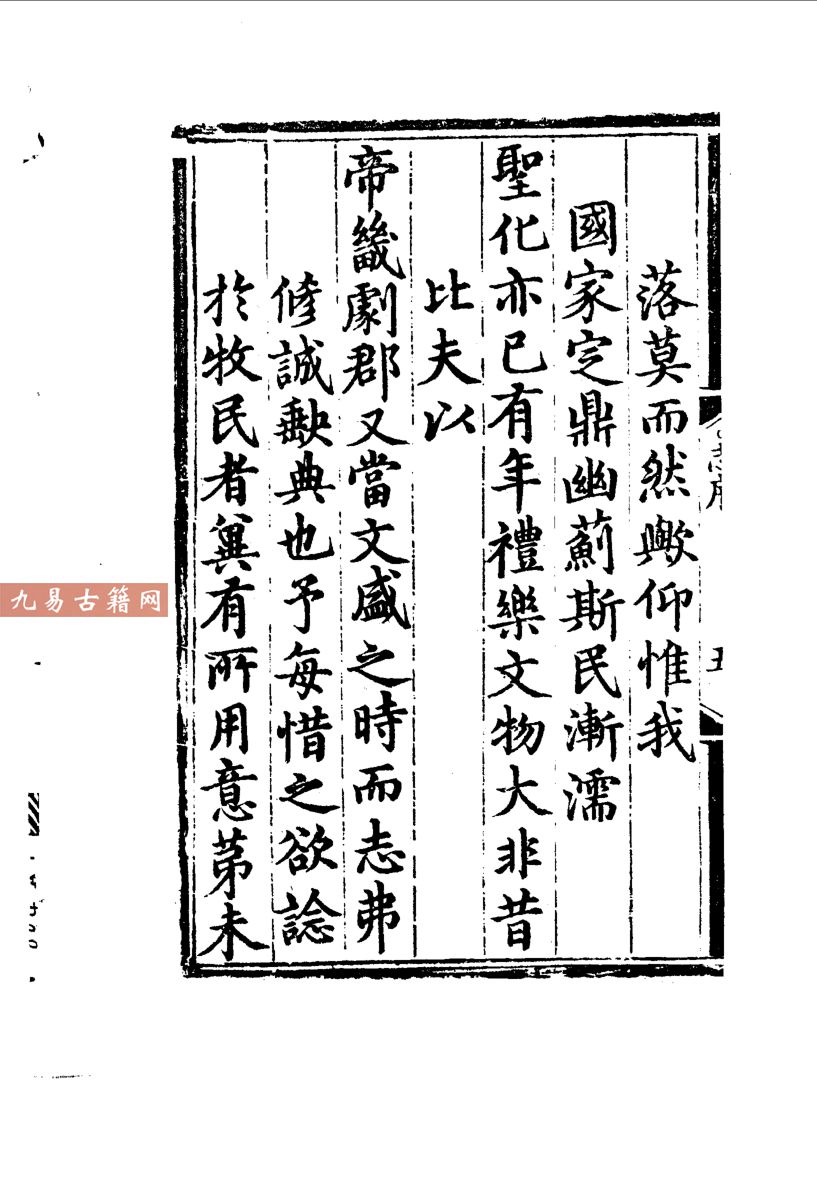 落莫而然歟仰惟我
國家定鼎幽薊斯民漸濡
聖化亦已有年禮樂文物大非昔
比夫以
帝畿劇郡又當文盛之時而志弗
脩誠缺典也予每惜之欲諗
於牧民者冀有所用意苐未
五
九易古籍网